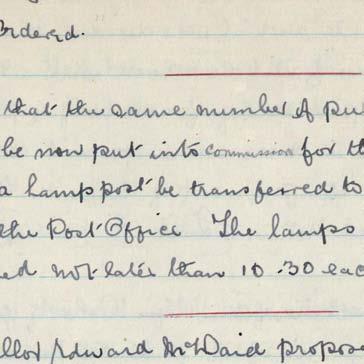 Ordered.
that the same number of pu
be now put into commission for th
a lamp post be transferred to
the Post Office The lamps
ed not later than 10.30 eac
llor Edward McDaid propose